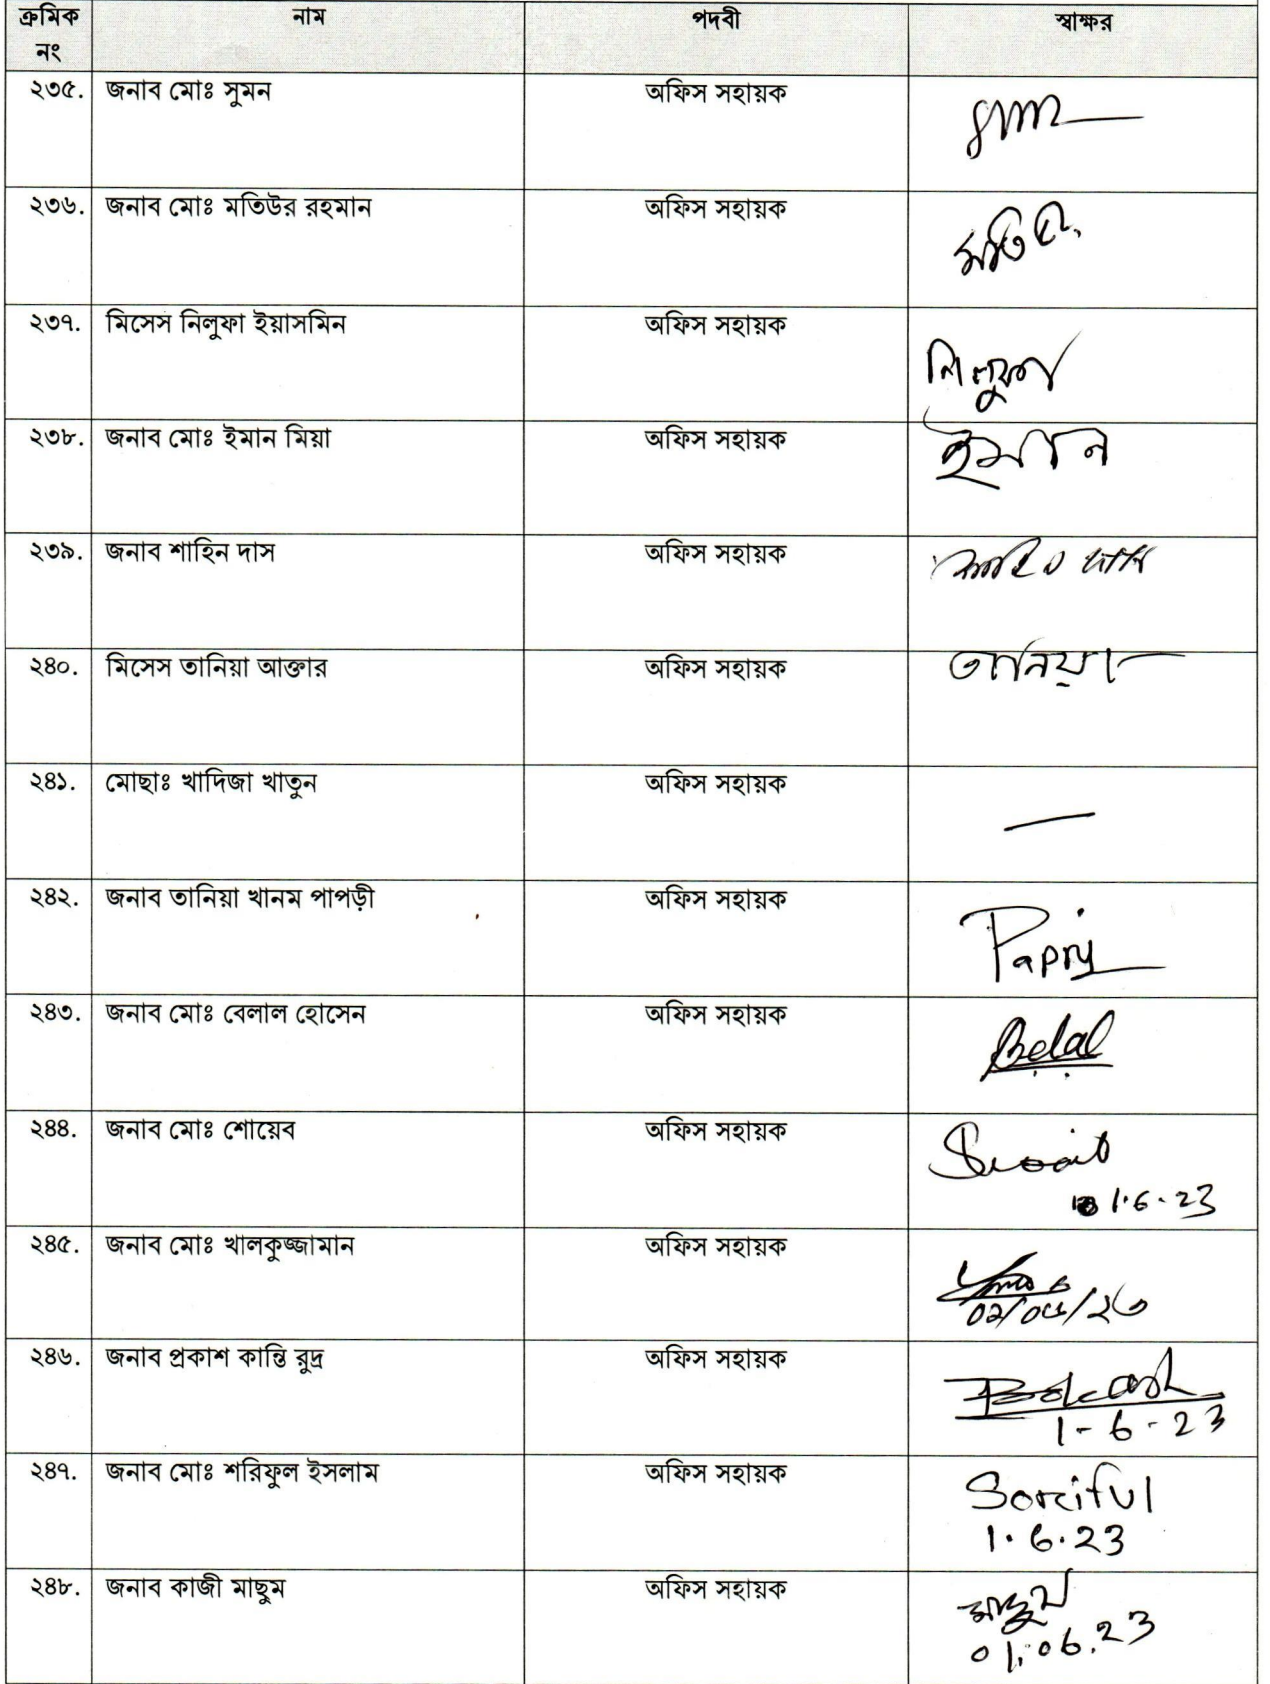 ক্রমিক নং নাম পদবী স্বাক্ষর
২৩৫. জনাব মোঃ সুমন অফিস সহায়ক
২৩৬. জনাব মোঃ মতিউর রহমান অফিস সহায়ক মতিউ
২৩৭. মিসেস নিলুফা ইয়াসমিন অফিস সহায়ক নিলুফা
২৩৮. জনাব মোঃ ইমান মিয়া অফিস সহায়ক ইমান
২৩৯. জনাব শাহিন দাস অফিস সহায়ক
২৪০. মিসেস তানিয়া আক্তার অফিস সহায়ক তানিয়া
২৪১. মোছাঃ খাদিজা খাতুন অফিস সহায়ক —
২৪২. জনাব তানিয়া খানম পাপড়ী অফিস সহায়ক Papry
২৪৩. জনাব মোঃ বেলাল হোসেন অফিস সহায়ক Belal
২৪৪. জনাব মোঃ শোয়েব অফিস সহায়ক
1.6.23
২৪৫. জনাব মোঃ খালকুজ্জামান অফিস সহায়ক
২৪৬. জনাব প্রকাশ কান্তি রুদ্র অফিস সহায়ক
1-6-23
২৪৭. জনাব মোঃ শরিফুল ইসলাম অফিস সহায়ক Soriful
1.6.23
২৪৮. জনাব কাজী মাছুম অফিস সহায়ক মাছুম
01.06.23